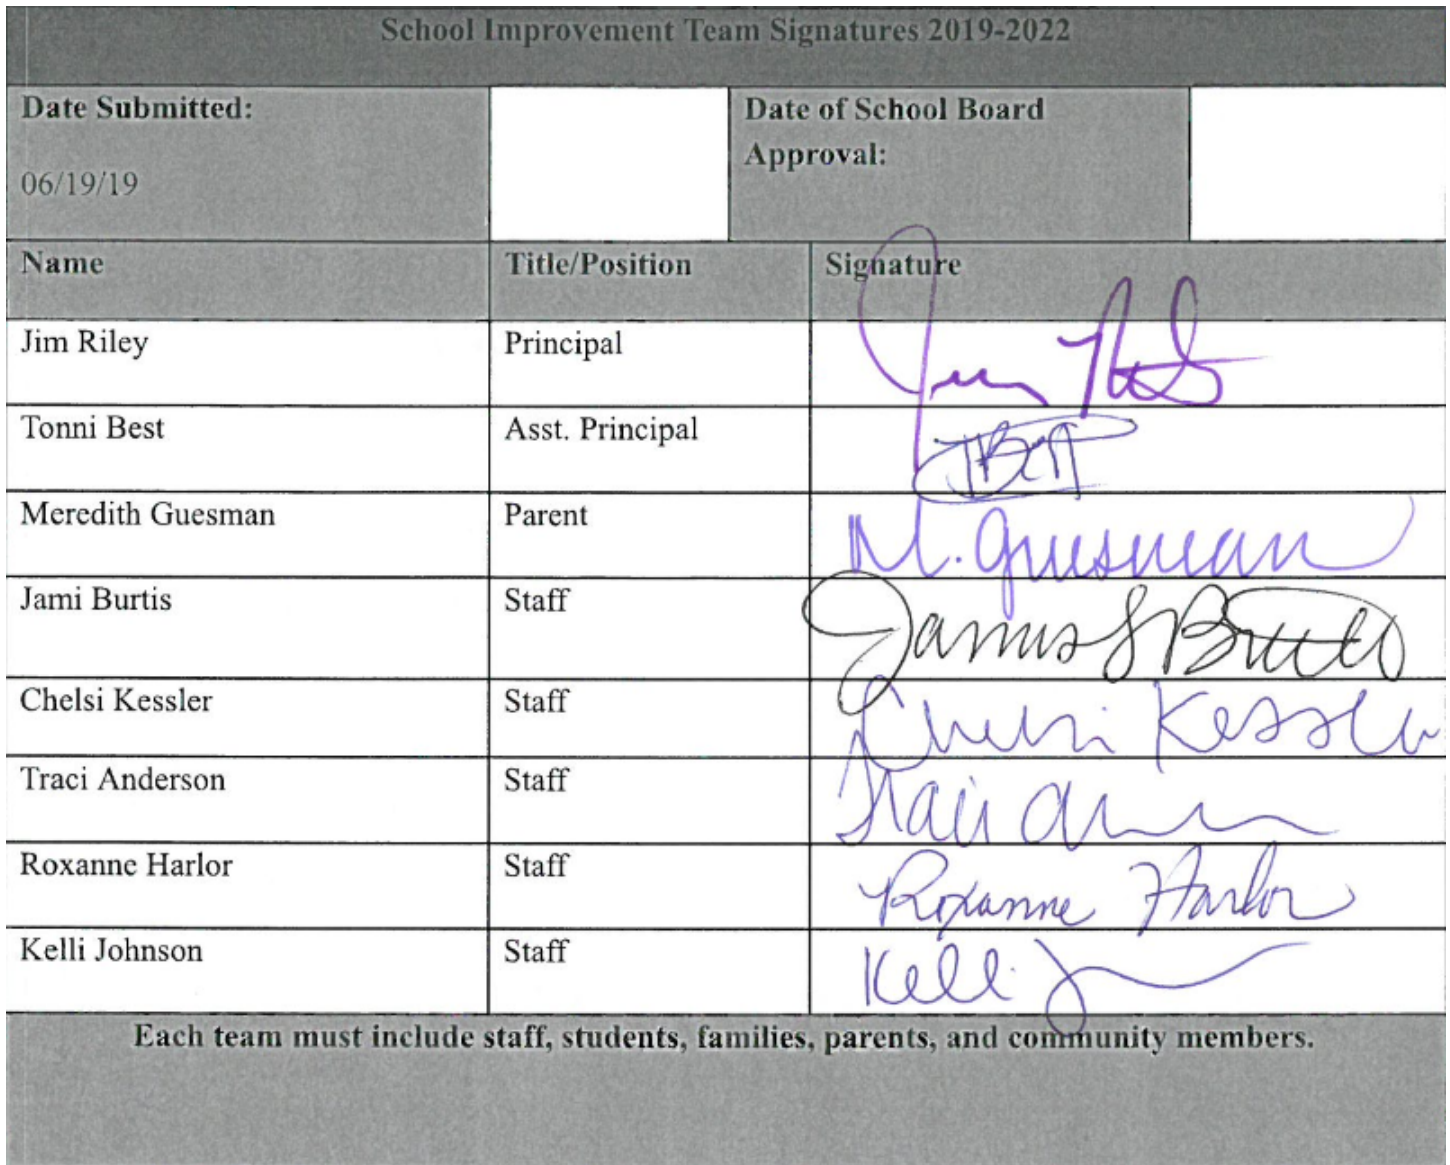 School Improvement Team Signatures 2019-2022
Date Submitted:
06/19/19
Date of School Board
Approval:
Name Title/Position Signature
Jim Riley Principal Jim
Tonni Best Asst. Principal TBest
Meredith Guesman Parent M. Guesman
Jami Burtis Staff
Chelsi Kessler Staff Chelsi Kessler
Traci Anderson Staff Traci
Roxanne Harlor Staff Roxanne Harlor
Kelli Johnson Staff Kelli
Each team must include staff, students, families, parents, and community members.